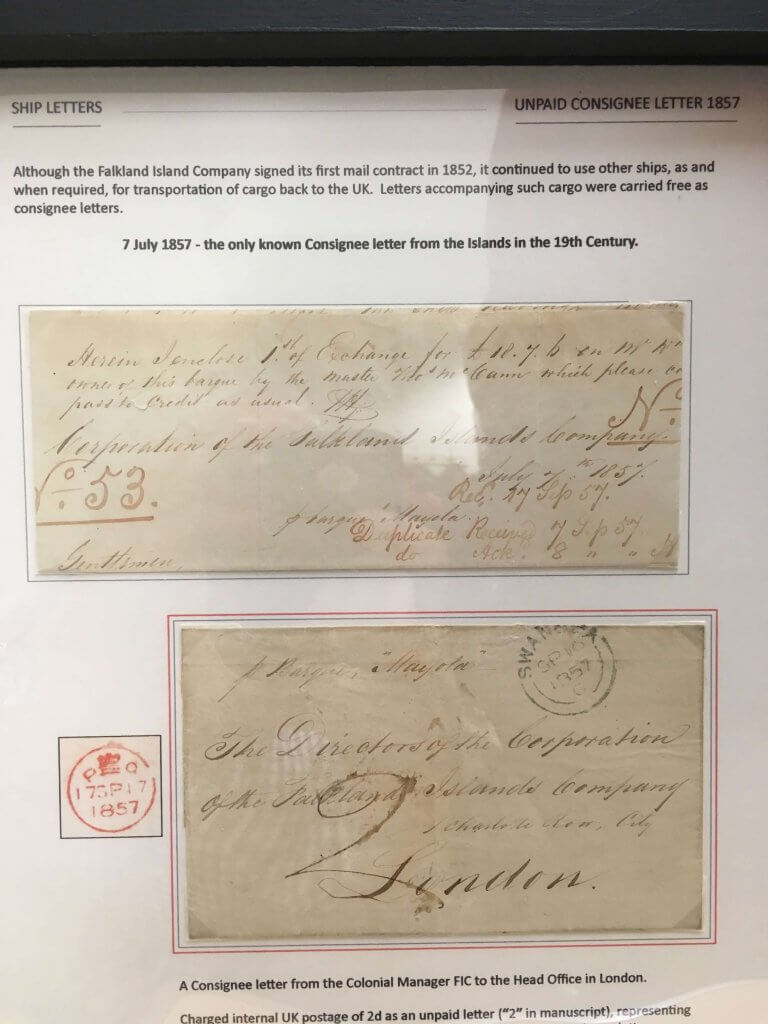 SHIP LETTERS
UNPAID CONSIGNEE LETTER 1857
Although the Falkland Island Company signed its first mail contract in 1852, it continued to use other ships, as and
when required, for transportation of cargo back to the UK. Letters accompanying such cargo were carried free as
consignee letters.
7 July 1857 - the only known Consignee letter from the Islands in the 19th Century.
Herein I enclose 1.st of Exchange for £18.7.6 on Mr
owner of this barque by the master Thos McCann which please
pass to Credit as usual.
Corporation of the Falkland Islands Company.
No 53.
July 7th 1857.
Rec. 27 Sep 57.
p barque "Mayola"
Duplicate Received 7 Sep 57
do Ack. 8 " "
Gentlemen,
p Barque, "Mayola"
SWANSEA
SP 16
1857
The Directors of the Corporation
of the Falkland Islands Company
Charlotte Row, City
2
London.
17 SP 17
1857
A Consignee letter from the Colonial Manager FIC to the Head Office in London.
Charged internal UK postage of 2d as an unpaid letter ("2" in manuscript), representing